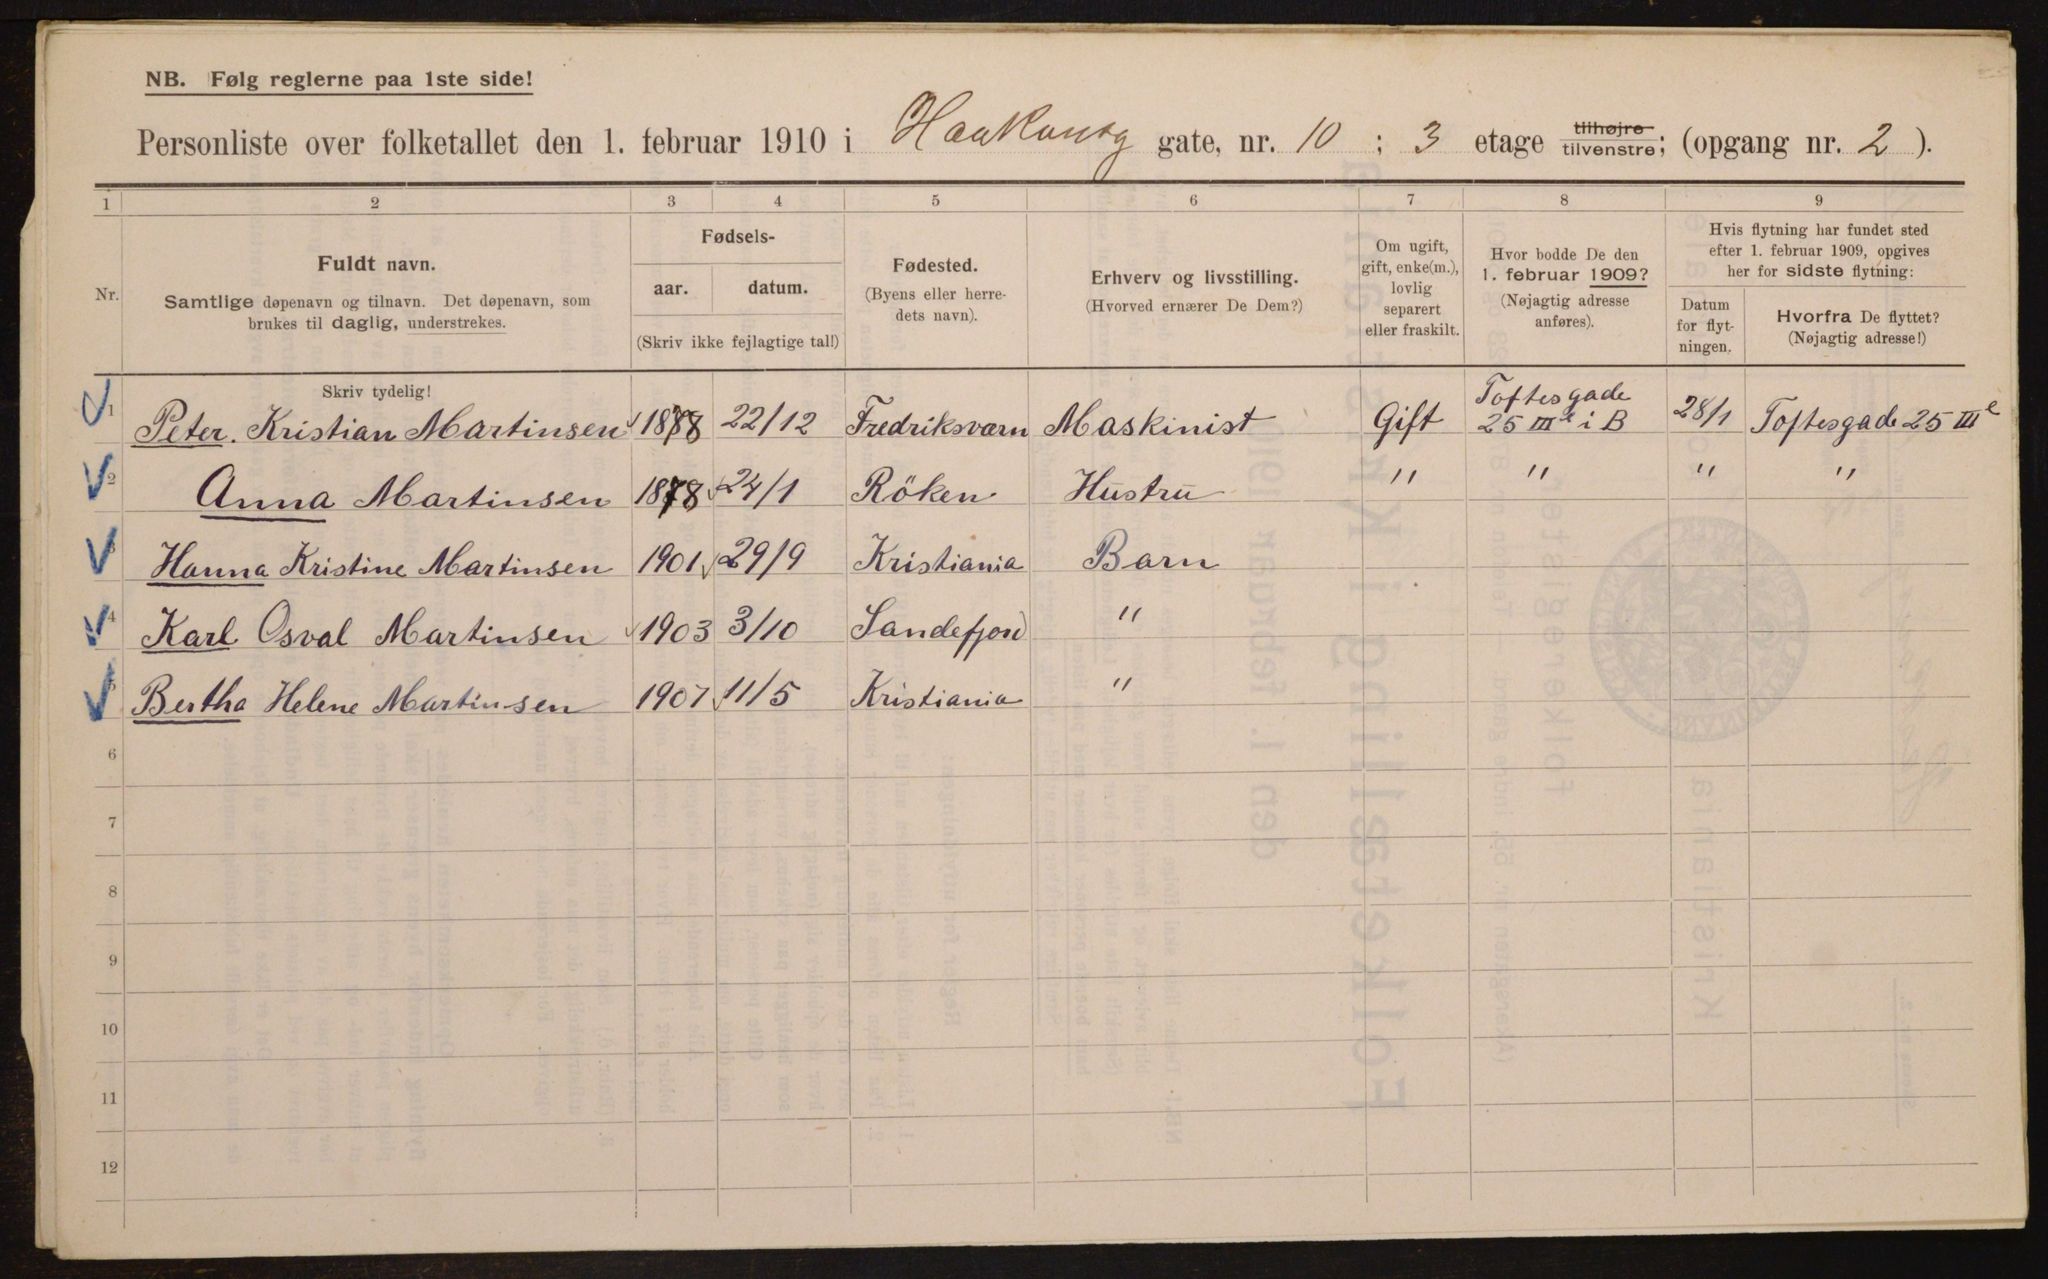 NB. Følg reglerne paa 1ste side!
Personliste over folketallet den 1. februar 1910 i Haakonsg gate, nr. 10 ; 3 etage tilhøjre tilvenstre; (opgang nr. 2 ).
1 2 3 4 5 6 7 8 9
Nr.
Fuldt navn.
Samtlige døpenavn og tilnavn. Det døpenavn, som
brukes til daglig, understrekes.
Fødsels-
aar. datum.
(Skriv ikke fejlagtige tal!)
Fødested.
(Byens eller herre-
dets navn).
Erhverv og livsstilling.
(Hvorved ernærer De Dem?)
Om ugift,
gift, enke(m.),
lovlig
separert
eller fraskilt.
Hvor bodde De den
1. februar 1909?
(Nøjagtig adresse
anføres).
Hvis flytning har fundet sted
efter 1. februar 1909, opgives
her for sidste flytning:
Datum
for flyt-
ningen.
Hvorfra De flyttet?
(Nøjagtig adresse!)
Skriv tydelig!
1 Peter. Kristian Martinsen 1878 22/12 Fredriksværn Maskinist Gift Toftesgade 25 III e i B 28/1 Toftesgade 25 III e
2 Anna Martinsen 1878 24/1 Röken Hustru " " " "
3 Hanna Kristine Martinsen 1901 29/9 Kristiania Barn
4 Karl Osval Martinsen 1903 3/10 Sandefjord "
5 Bertha Helene Martinsen 1907 11/5 Kristiania "
6
7
8
9
10
11
12